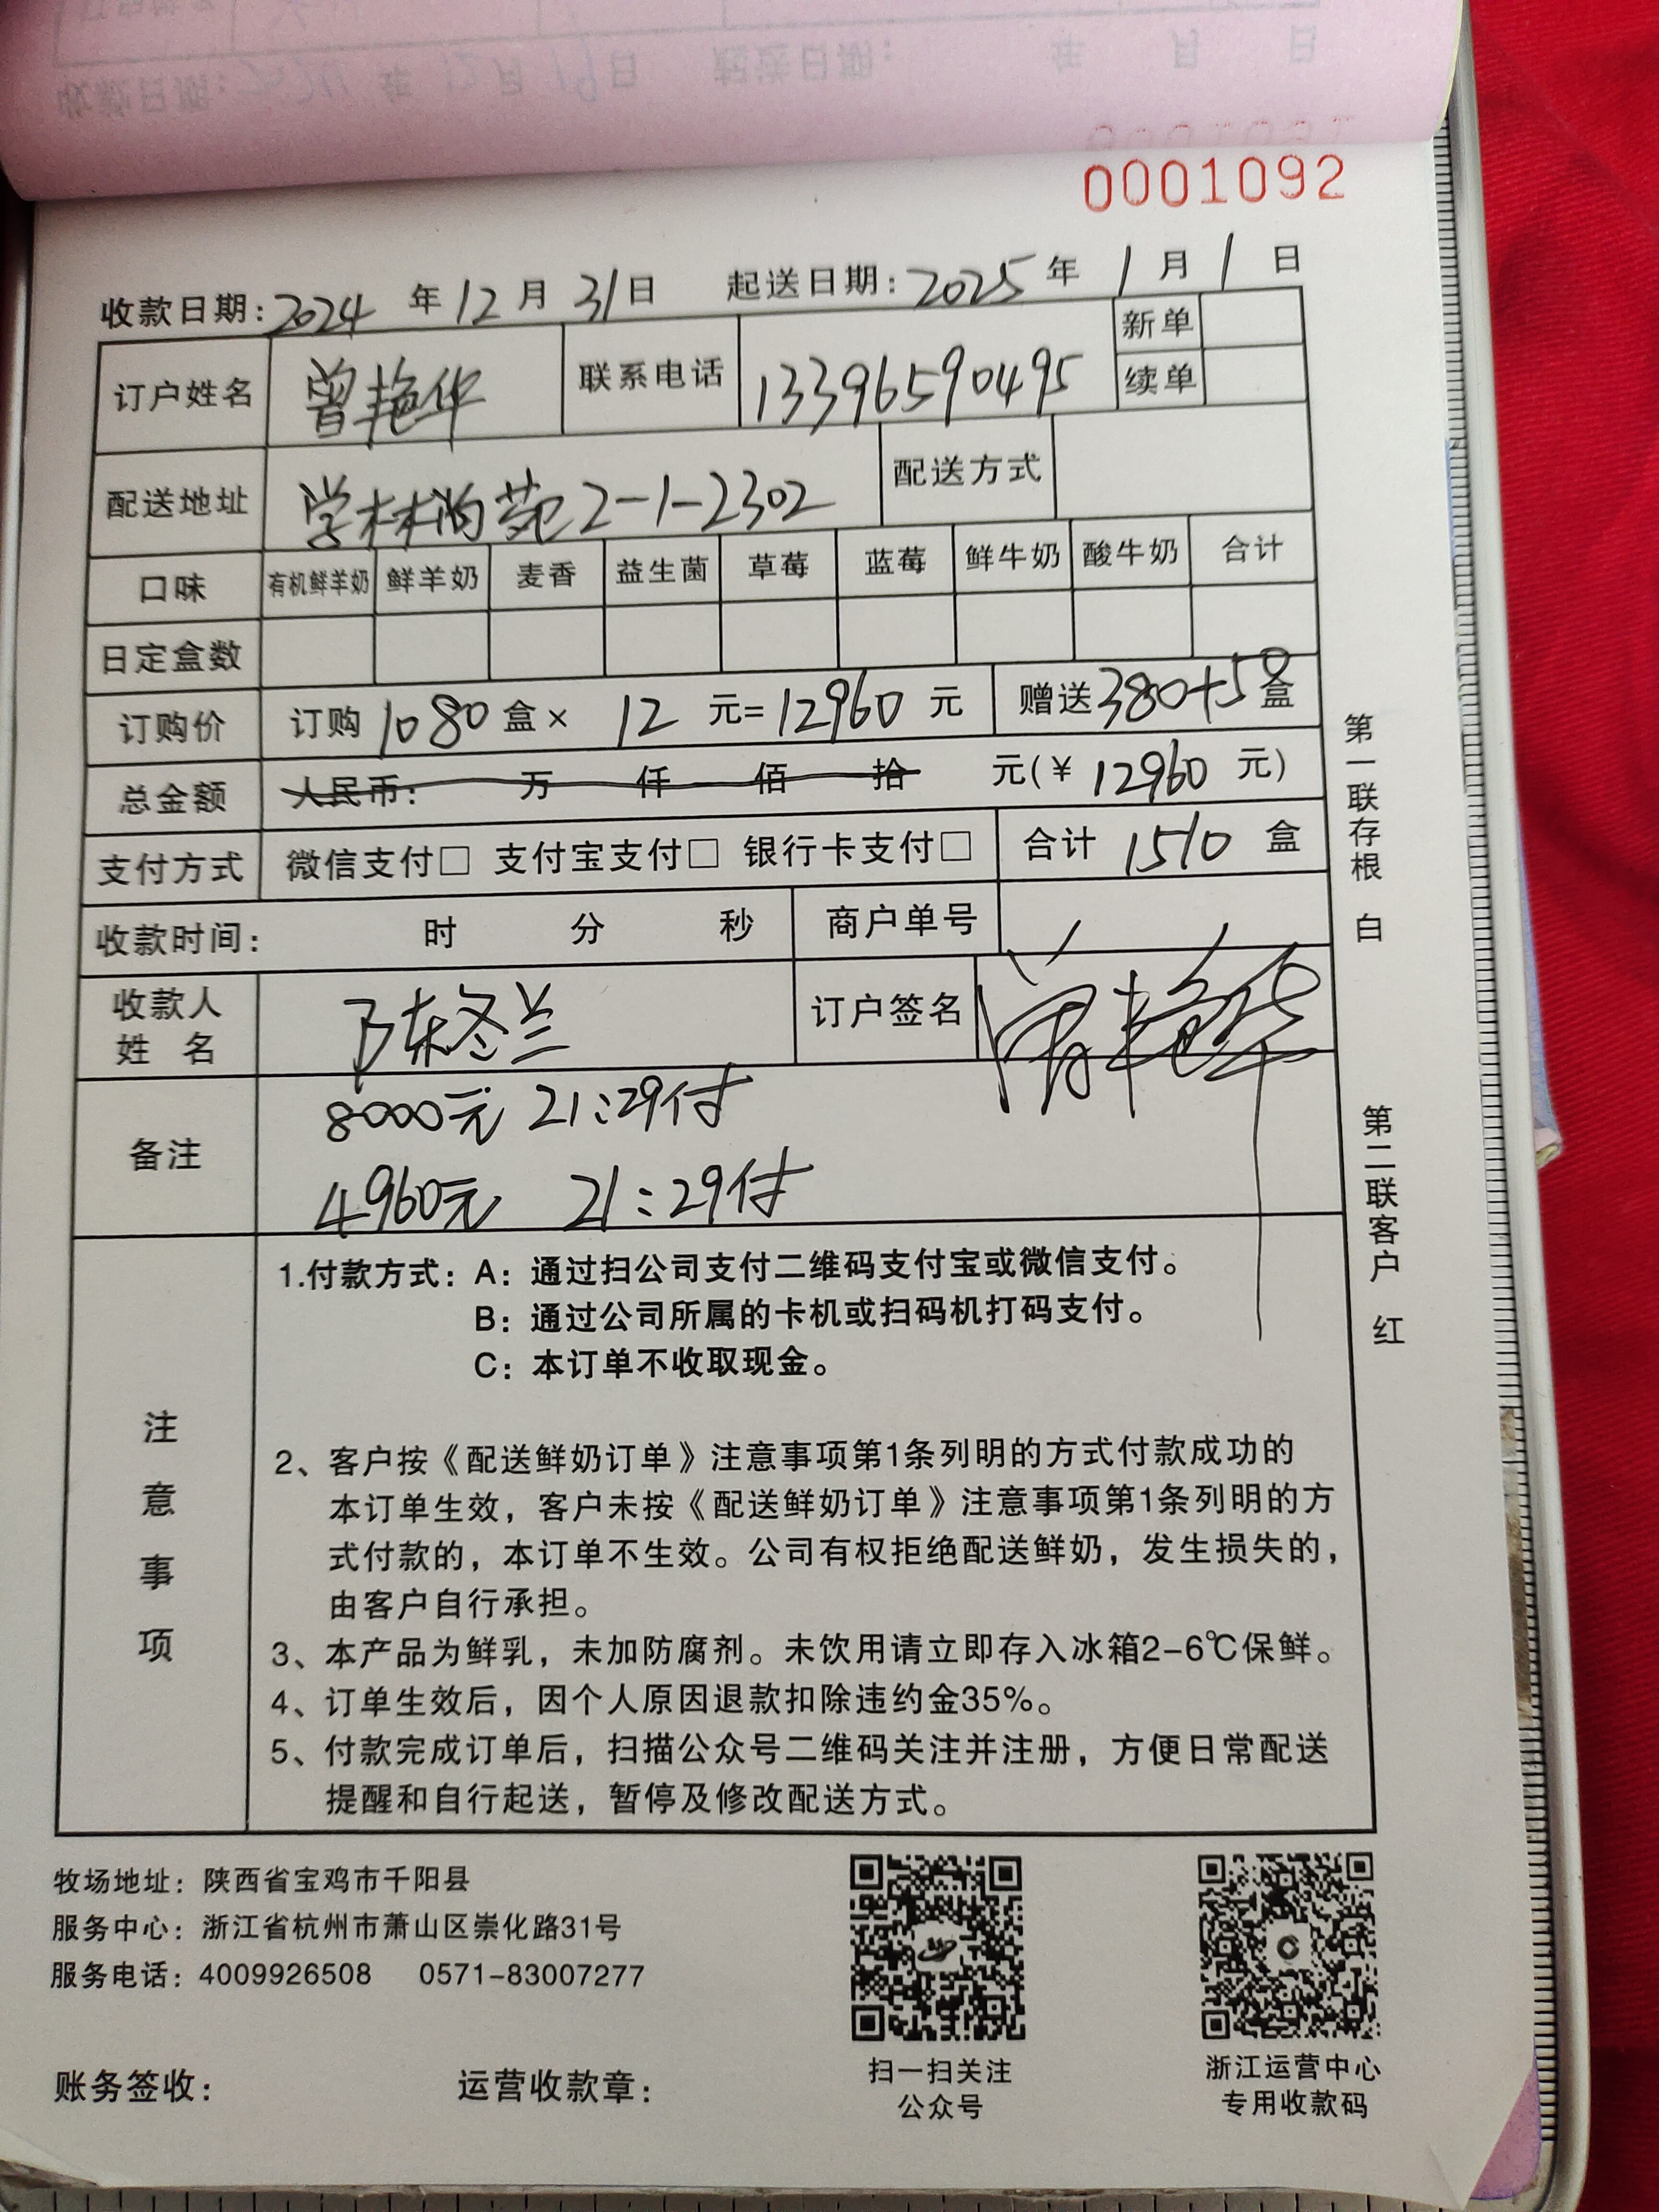 收款日期:2024 年 12 月 19 日 起送日期: 年 月 日
0001091
0001092
收款日期:2024 年 12 月 31 日 起送日期:2025 年 1 月 1 日
订户姓名 曾艳华 联系电话 13396590495 新单
续单
配送地址 学林尚苑2-1-2302 配送方式
口味 有机鲜羊奶 鲜羊奶 麦香 益生菌 草莓 蓝莓 鲜牛奶 酸牛奶 合计
日定盒数
订购价 订购 1080 盒× 12 元= 12960 元 赠送 380+50 盒
总金额 人民币: 万 仟 佰 拾 元(¥ 12960 元)
支付方式 微信支付□ 支付宝支付□ 银行卡支付□ 合计 1510 盒
收款时间: 时 分 秒 商户单号
收款人
姓 名 陈冬兰 订户签名 曾艳华
备注 8000元 21:29付
4960元 21:29付
注意事项
1.付款方式:A:通过扫公司支付二维码支付宝或微信支付。
B:通过公司所属的卡机或扫码机打码支付。
C:本订单不收取现金。
2、客户按《配送鲜奶订单》注意事项第1条列明的方式付款成功的
本订单生效,客户未按《配送鲜奶订单》注意事项第1条列明的方
式付款的,本订单不生效。公司有权拒绝配送鲜奶,发生损失的,
由客户自行承担。
3、本产品为鲜乳,未加防腐剂。未饮用请立即存入冰箱2-6℃保鲜。
4、订单生效后,因个人原因退款扣除违约金35%。
5、付款完成订单后,扫描公众号二维码关注并注册,方便日常配送
提醒和自行起送,暂停及修改配送方式。
第一联存根 白
第二联客户 红
牧场地址:陕西省宝鸡市千阳县
服务中心:浙江省杭州市萧山区崇化路31号
服务电话:4009926508 0571-83007277
扫一扫关注
公众号
浙江运营中心
专用收款码
账务签收: 运营收款章: